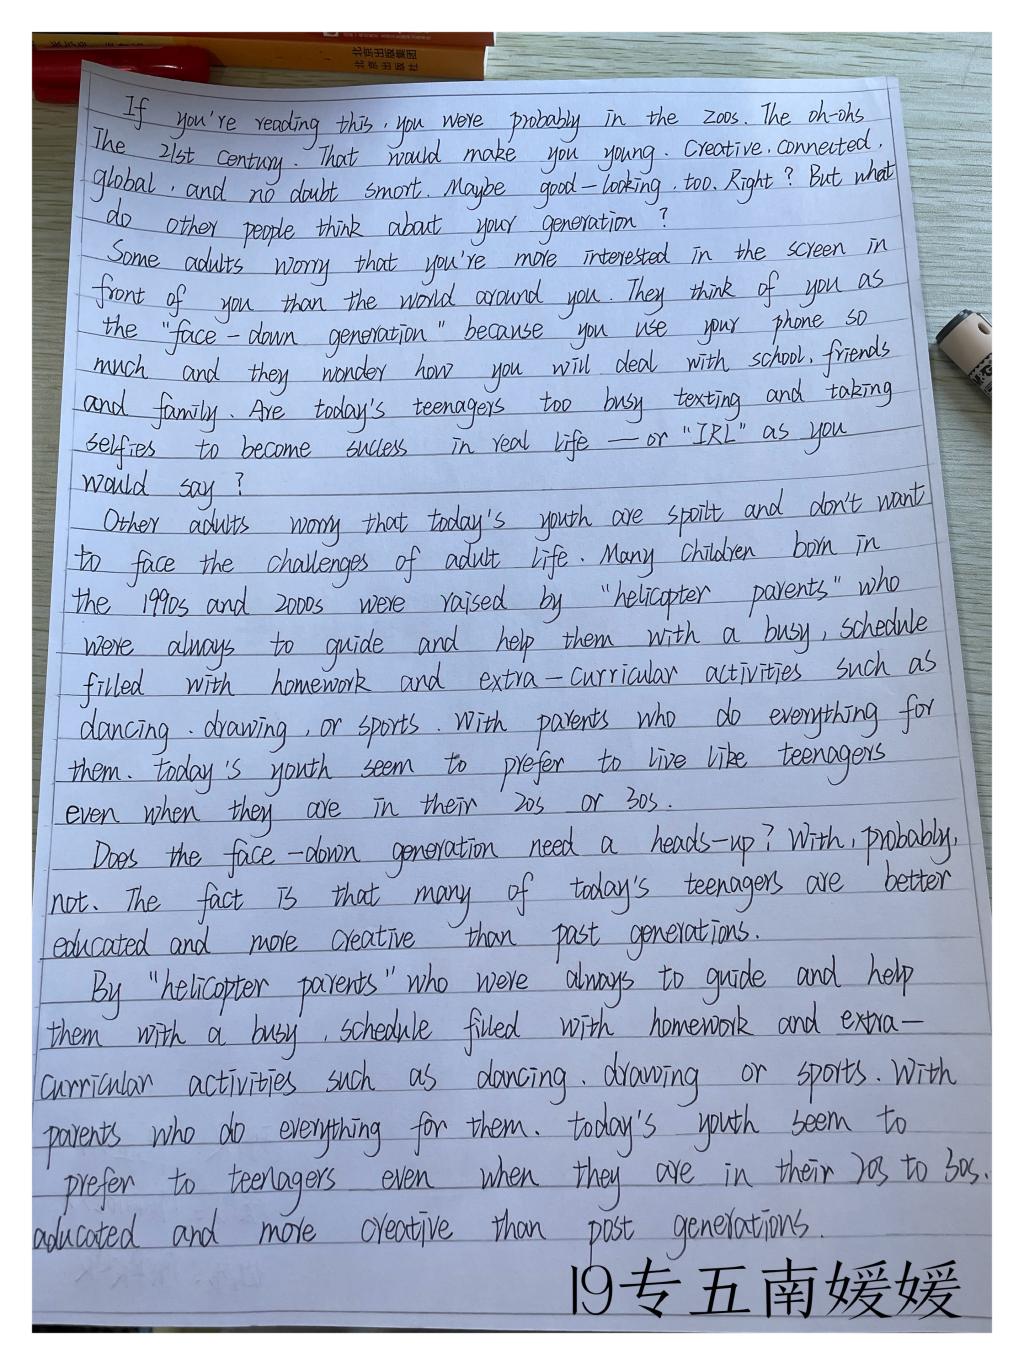 北京出版集团
北京出版社
If you're reading this, you were probably in the zoos. The oh-ohs
The 21st century. That would make you young. Creative, connected,
global, and no doubt smort. Maybe good-looking, too. Right? But what
do other people think about your generation?
Some adults worry that you're more interested in the screen in
front of you than the world around you. They think of you as
the "face-down generation" because you use your phone so
much and they wonder how you will deal with school, friends
and family. Are today's teenagers too busy texting and taking
selfies to become success in real life — or "IRL" as you
would say?
Other adults worry that today's youth are spoilt and don't want
to face the challenges of adult life. Many children born in
the 1990s and 2000s were raised by "helicopter parents" who
were always to guide and help them with a busy, schedule
filled with homework and extra-curricular activities such as
dancing, drawing, or sports. With parents who do everything for
them. today's youth seem to prefer to live like teenagers
even when they are in their 20s or 30s.
Does the face-down generation need a heads-up? With, probably,
not. The fact is that many of today's teenagers are better
educated and more creative than past generations.
By "helicopter parents" who were always to guide and help
them with a busy, schedule filled with homework and extra-
curricular activities such as dancing, drawing or sports. With
parents who do everything for them. today's youth seem to
prefer to teenagers even when they are in their 20s to 30s.
aducated and more creative than post generations.
19专五南媛媛